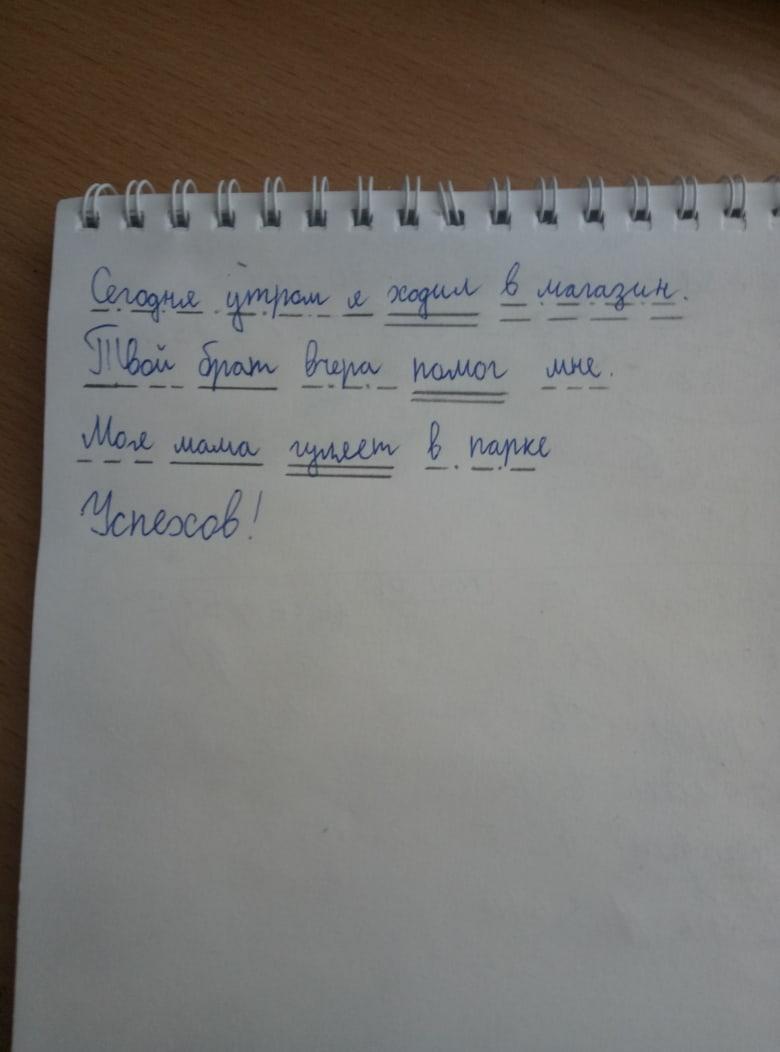 Сегодня утром я ходил в магазин.
Твой брат вчера помог мне.
Моя мама гуляет в парке
Успехов!